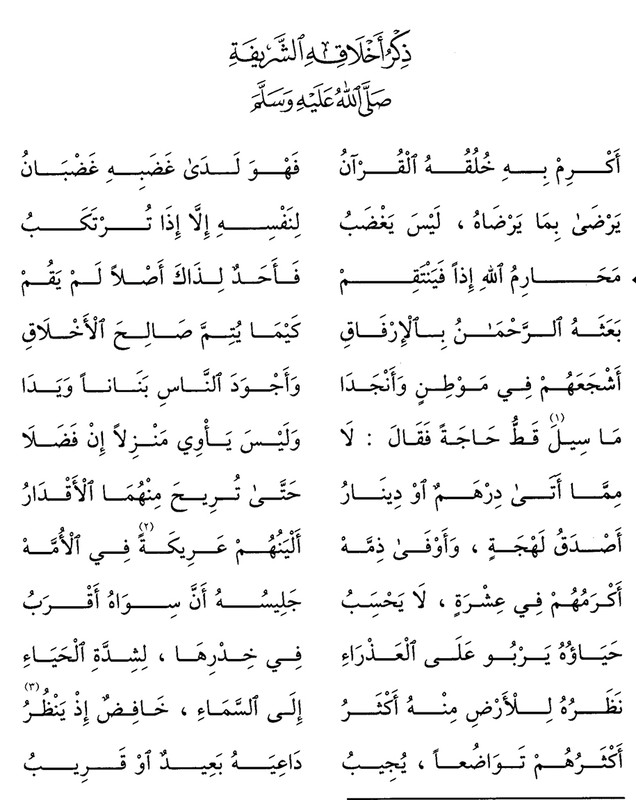 ذِكْرُ أَخْلَاقِهِ ٱلشَّرِيفَةِ
صَلَّى ٱللهُ عَلَيْهِ وَسَلَّمَ
أَكْرِمْ بِهِ خُلُقُهُ ٱلْقُرْآنُ فَهْوَ لَدَىٰ غَضَبِهِ غَضْبَانُ
يَرْضَىٰ بِمَا يَرْضَاهُ ، لَيْسَ يَغْضَبُ لِنَفْسِهِ إِلَّا إِذَا تُرْتَكَبُ
مَحَارِمُ ٱللهِ إِذاً فَيَنْتَقِمْ فَأَحَدٌ لِذَاكَ أَصْلاً لَمْ يَقُمْ
بَعَثَهُ ٱلرَّحْمَـٰنُ بِٱلْإِرْفَاقِ كَيْمَا يُتِمَّ صَالِحَ ٱلْأَخْلَاقِ
أَشْجَعَهُمْ فِي مَوْطِنٍ وَأَنْجَدَا وَأَجْوَدَ ٱلنَّاسِ بَنَاناً وَيَدَا
مَا سِيلَ(١) قَطُّ حَاجَةً فَقَالَ : لَا وَلَيْسَ يَأْوِي مَنْزِلاً إِنْ فَضَلَا
مِمَّا أَتَىٰ دِرْهَمٌ ٱوْ دِينَارُ حَتَّىٰ تُرِيحَ مِنْهُمَا ٱلْأَقْدَارُ
أَصْدَقُ لَهْجَةٍ ، وَأَوْفَىٰ ذِمَّهْ أَلْيَنُهُمْ عَرِيكَةً(٢) فِي ٱلْأُمَّهْ
أَكْرَمُهُمْ فِي عِشْرَةٍ ، لَا يَحْسَبُ جَلِيسُهُ أَنَّ سِوَاهُ أَقْرَبُ
حَيَاؤُهُ يَرْبُو عَلَى ٱلْعَذْرَاءِ فِي خِدْرِهَا ، لِشِدَّةِ ٱلْحَيَاءِ
نَظَرُهُ لِلْأَرْضِ مِنْهُ أَكْثَرُ إِلَى ٱلسَّمَاءِ ، خَافِضٌ إِذْ يَنْظُرُ(٣)
أَكْثَرُهُمْ تَوَاضُعاً ، يُجِيبُ دَاعِيَهُ بَعِيدٌ ٱوْ قَرِيبُ